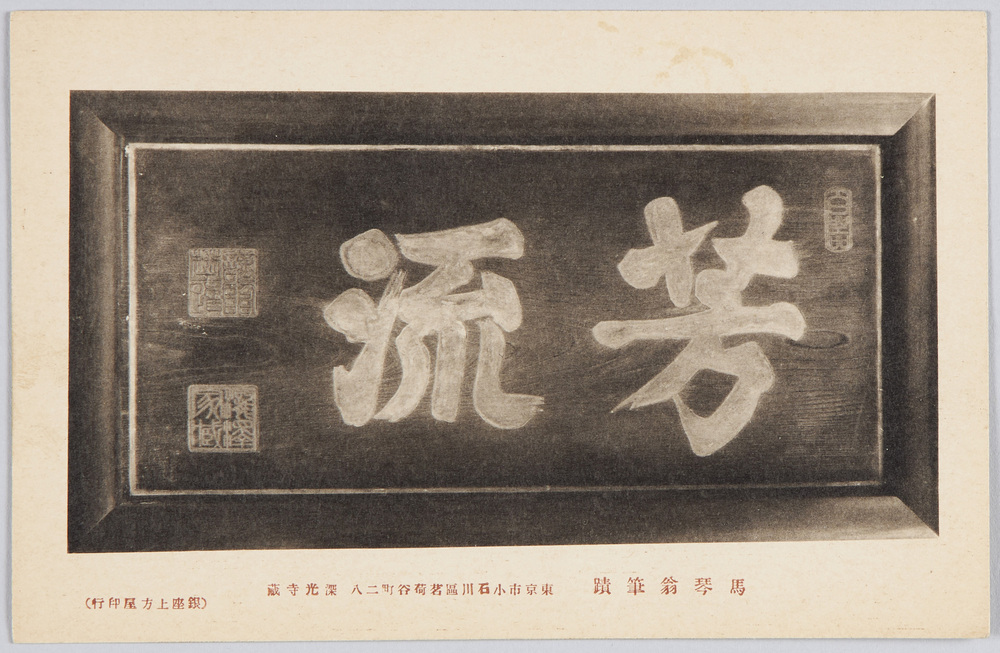 芳流
馬琴翁筆蹟
東京市小石川區茗荷谷町二八 深光寺藏
(銀座上方屋印行)